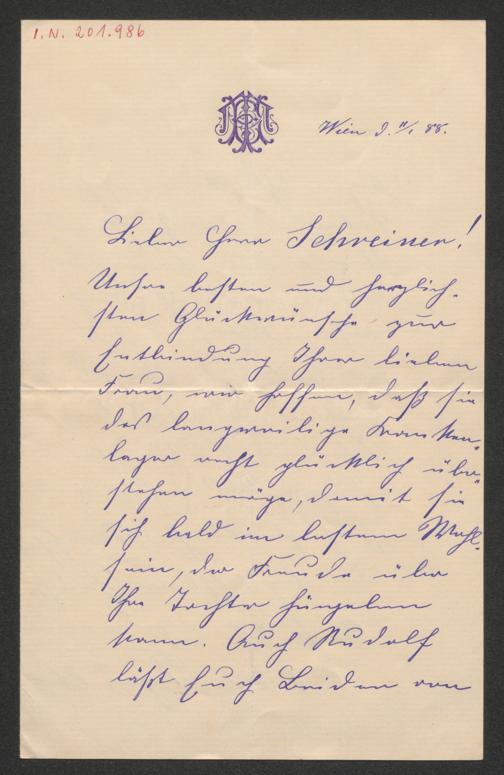 I.N. 201.986
Wien d. 11/1 88.
Lieber Herr Schreiner!
Unsre besten und herzlich-
sten Glückwünsche zur
Entbindung Ihrer lieben
Frau, wir hoffen, daß sie
das langweilige Kranken-
lager recht glücklich über-
stehen möge, damit sie
sich bald im besten Wohl-
sein, der Freude über
Ihre Tochter hingeben
kann. Auch Rudolf
läßt Euch Beiden von